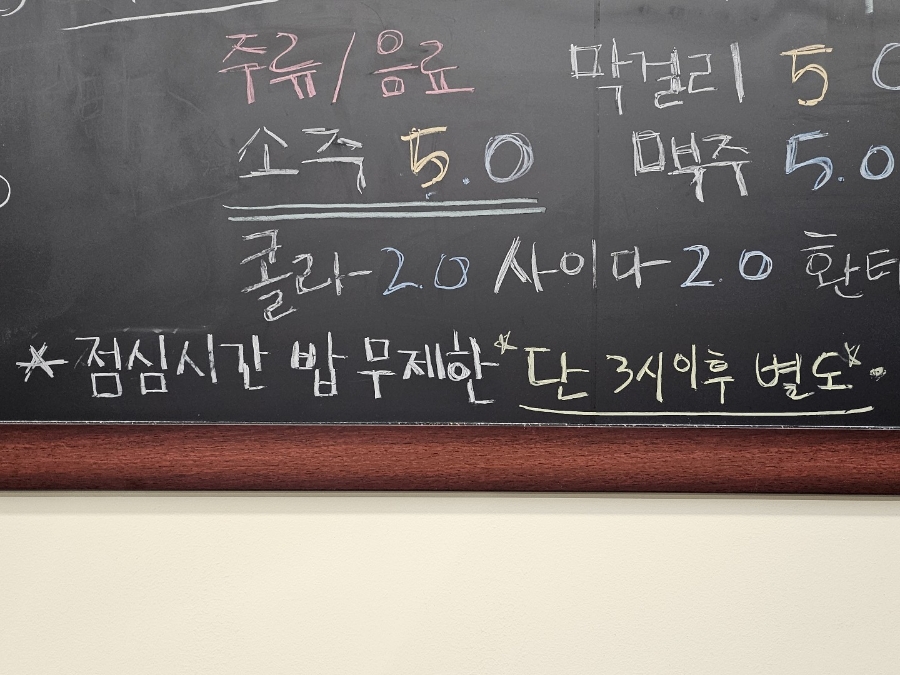 주류/음료 막걸리 5
소주 5.0 맥주 5.0
콜라 2.0 사이다 2.0 환타
*점심시간 밥 무제한* 단 3시이후 별도*.